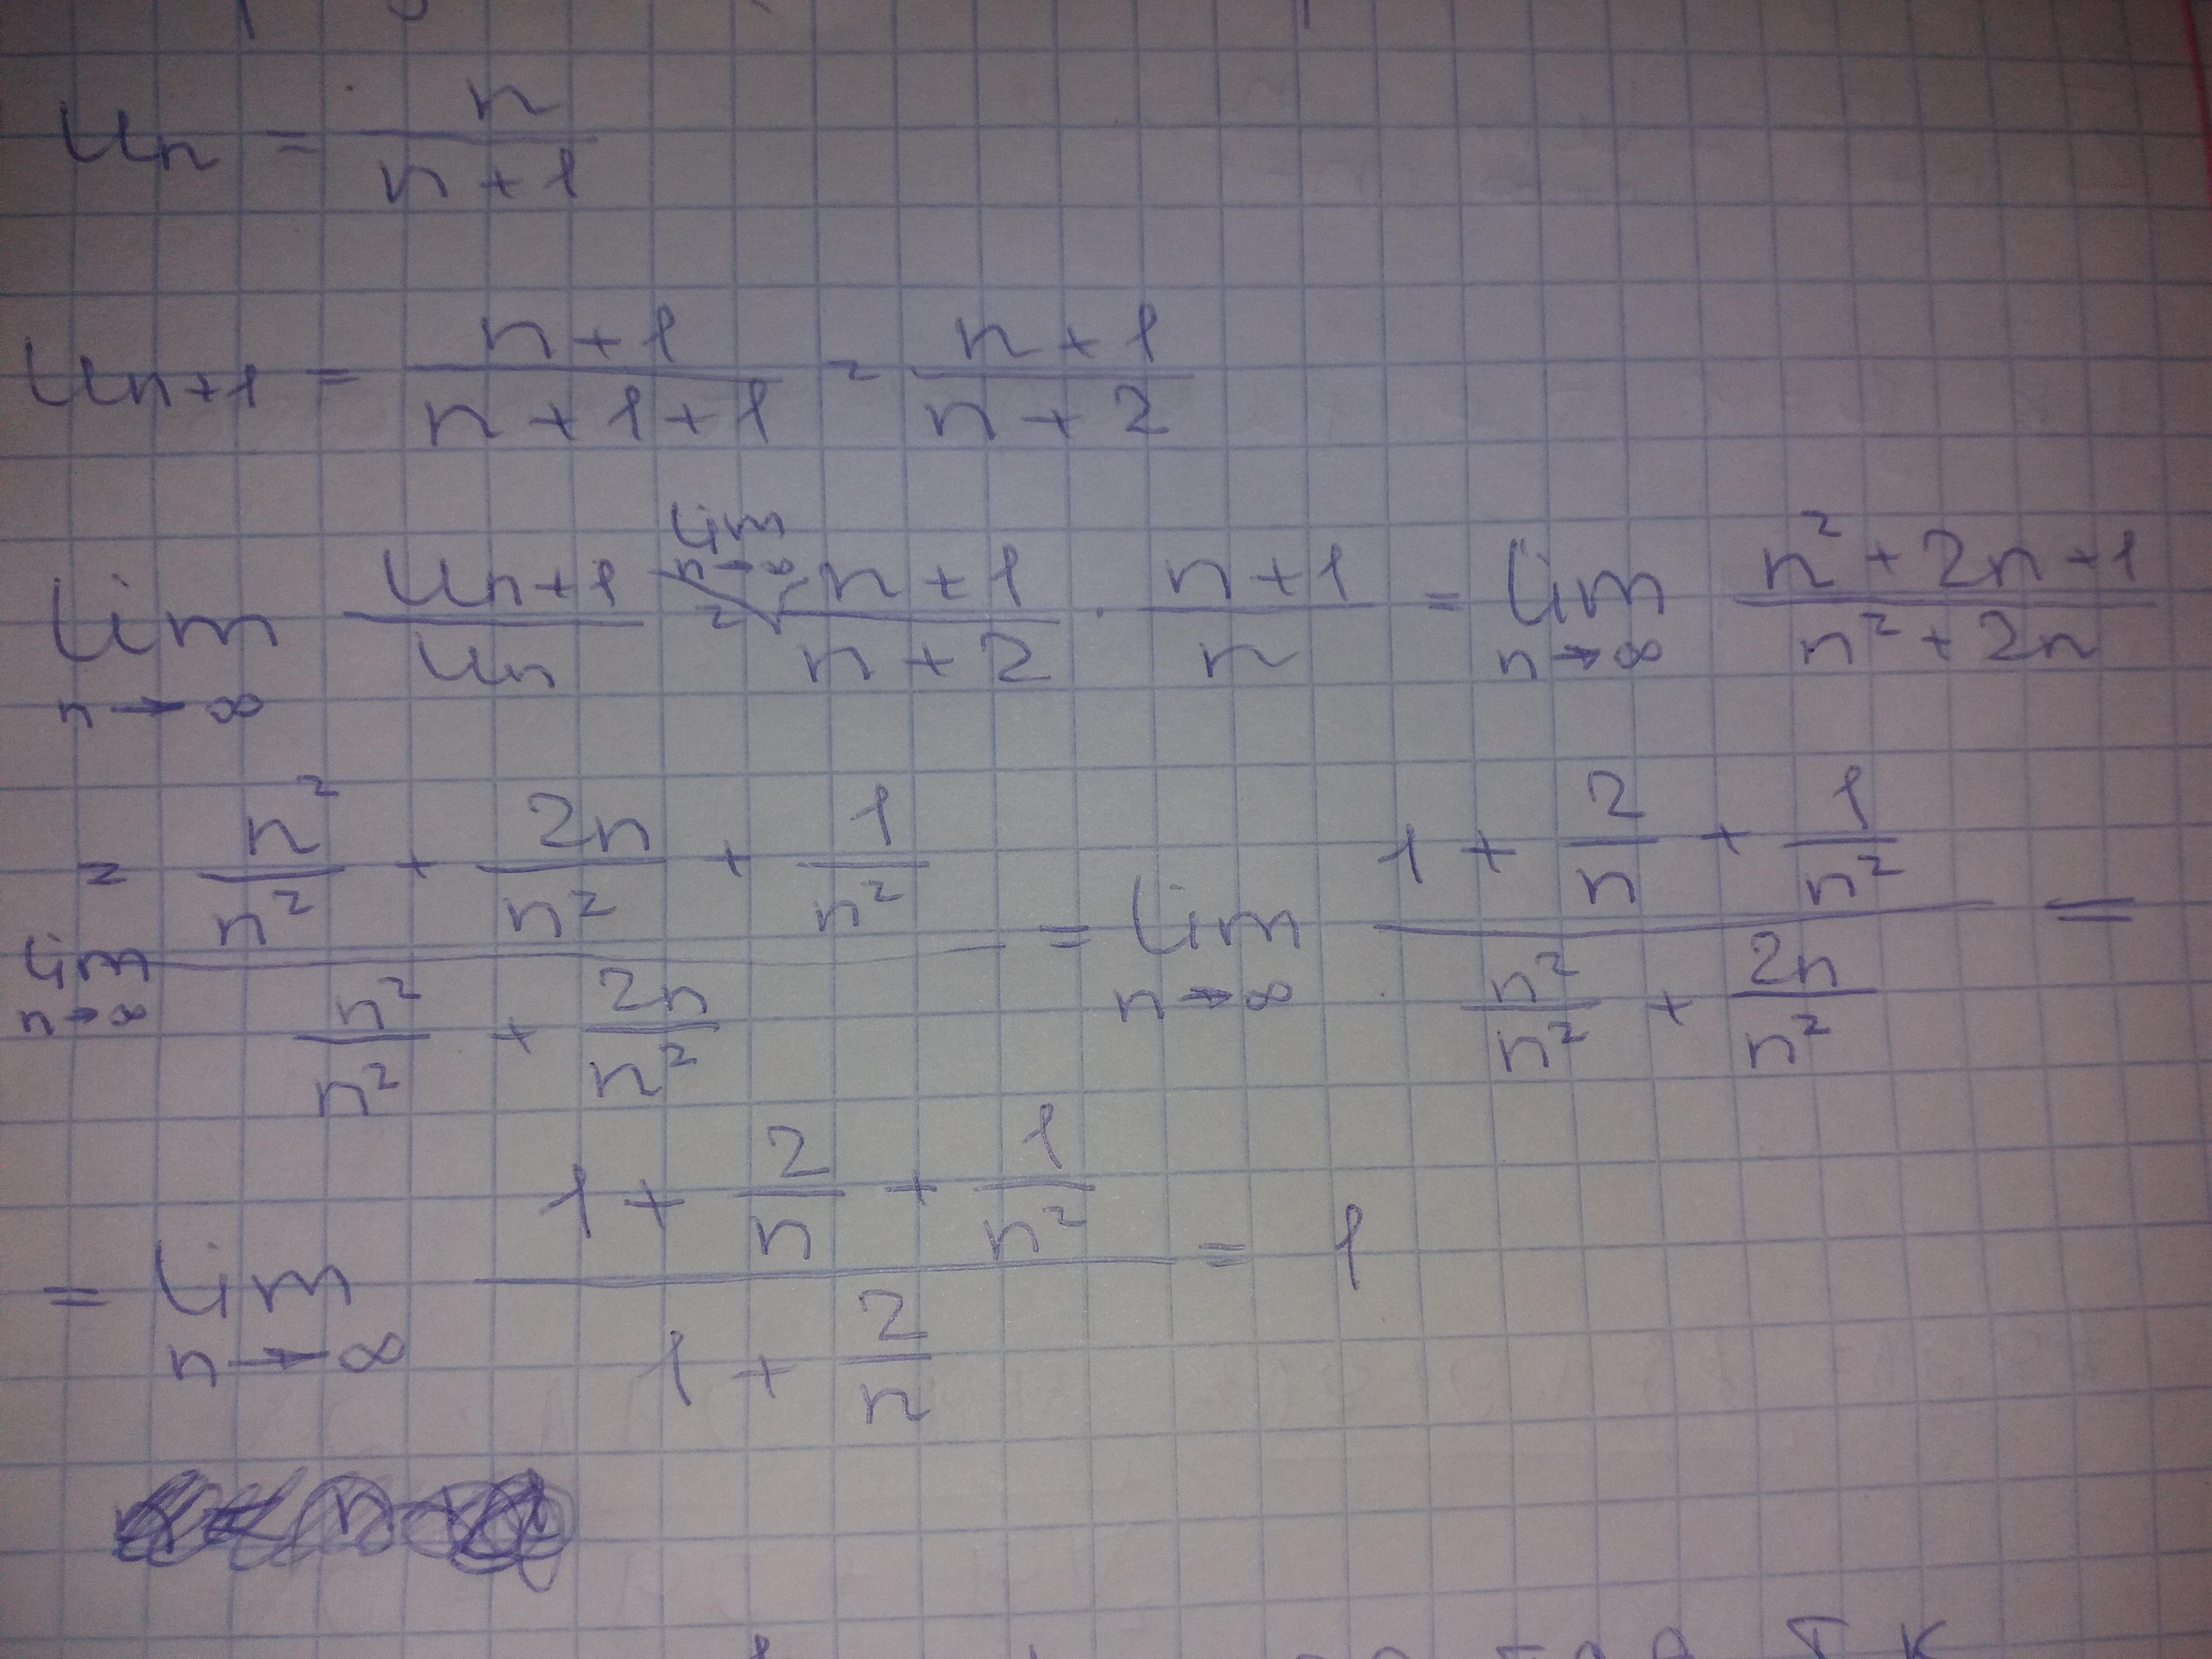 Un = n/(n+1)
Un+1 = (n+1)/(n+1+1) = (n+1)/(n+2)
lim n→∞ Un+1/Un = lim n→∞ (n+1)/(n+2) · (n+1)/n = lim n→∞ (n²+2n+1)/(n²+2n)
= lim n→∞ (n²/n² + 2n/n² + 1/n²)/(n²/n² + 2n/n²) = lim n→∞ (1 + 2/n + 1/n²)/(n²/n² + 2n/n²) =
= lim n→∞ (1 + 2/n + 1/n²)/(1 + 2/n) = 1